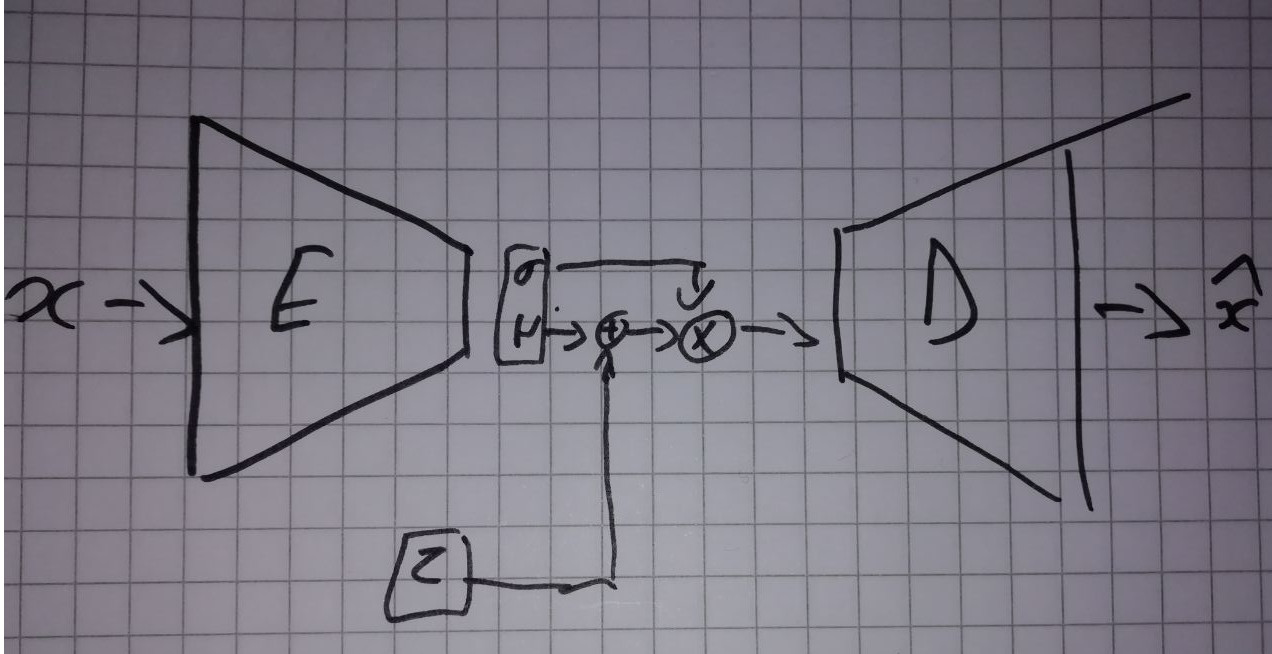 x → E σ μ → + → × → D → x̂
z